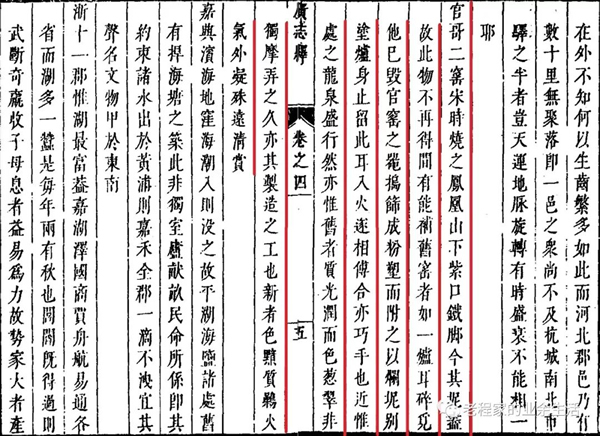 在外不知何以生齒繁多如此而河北郡邑乃有
數十里無聚落即一邑之衆尚不及杭城南北市
驛之半者豈天運地脈旋轉有時盛衰不能相一
耶
官哥二窰宋時燒之鳳凰山下紫口鐵脚今其泥盡
故此物不再得間有能補舊窰者如一爐耳碎覓
他已毀官窰之噐搗篩成粉塑而附之以爛泥別
塗爐身止留此耳入火遂相傅合亦巧手也近惟
處之龍泉盛行然亦惟舊者質光潤而色葱翠非
廣志繹 卷之四 五
獨摩弄之久亦其製造之工也新者色黯質火
氣外凝殊遠清賞
嘉興濱海地窪海潮入則没之故平湖海鹽諸處舊
有捍海塘之築此非獨室廬畎畝民命所係即其
約束諸水出於黄浦則嘉禾全郡一滴不洩宜其
聲名文物甲於東南
浙十一郡惟湖最富蓋嘉湖澤國商賈舟航易通各
省而湖多一蠶是每年兩有秋也閭閻既得過則
武斷奇贏收子母息者益易爲力故勢家大者產
老程家的业余生活